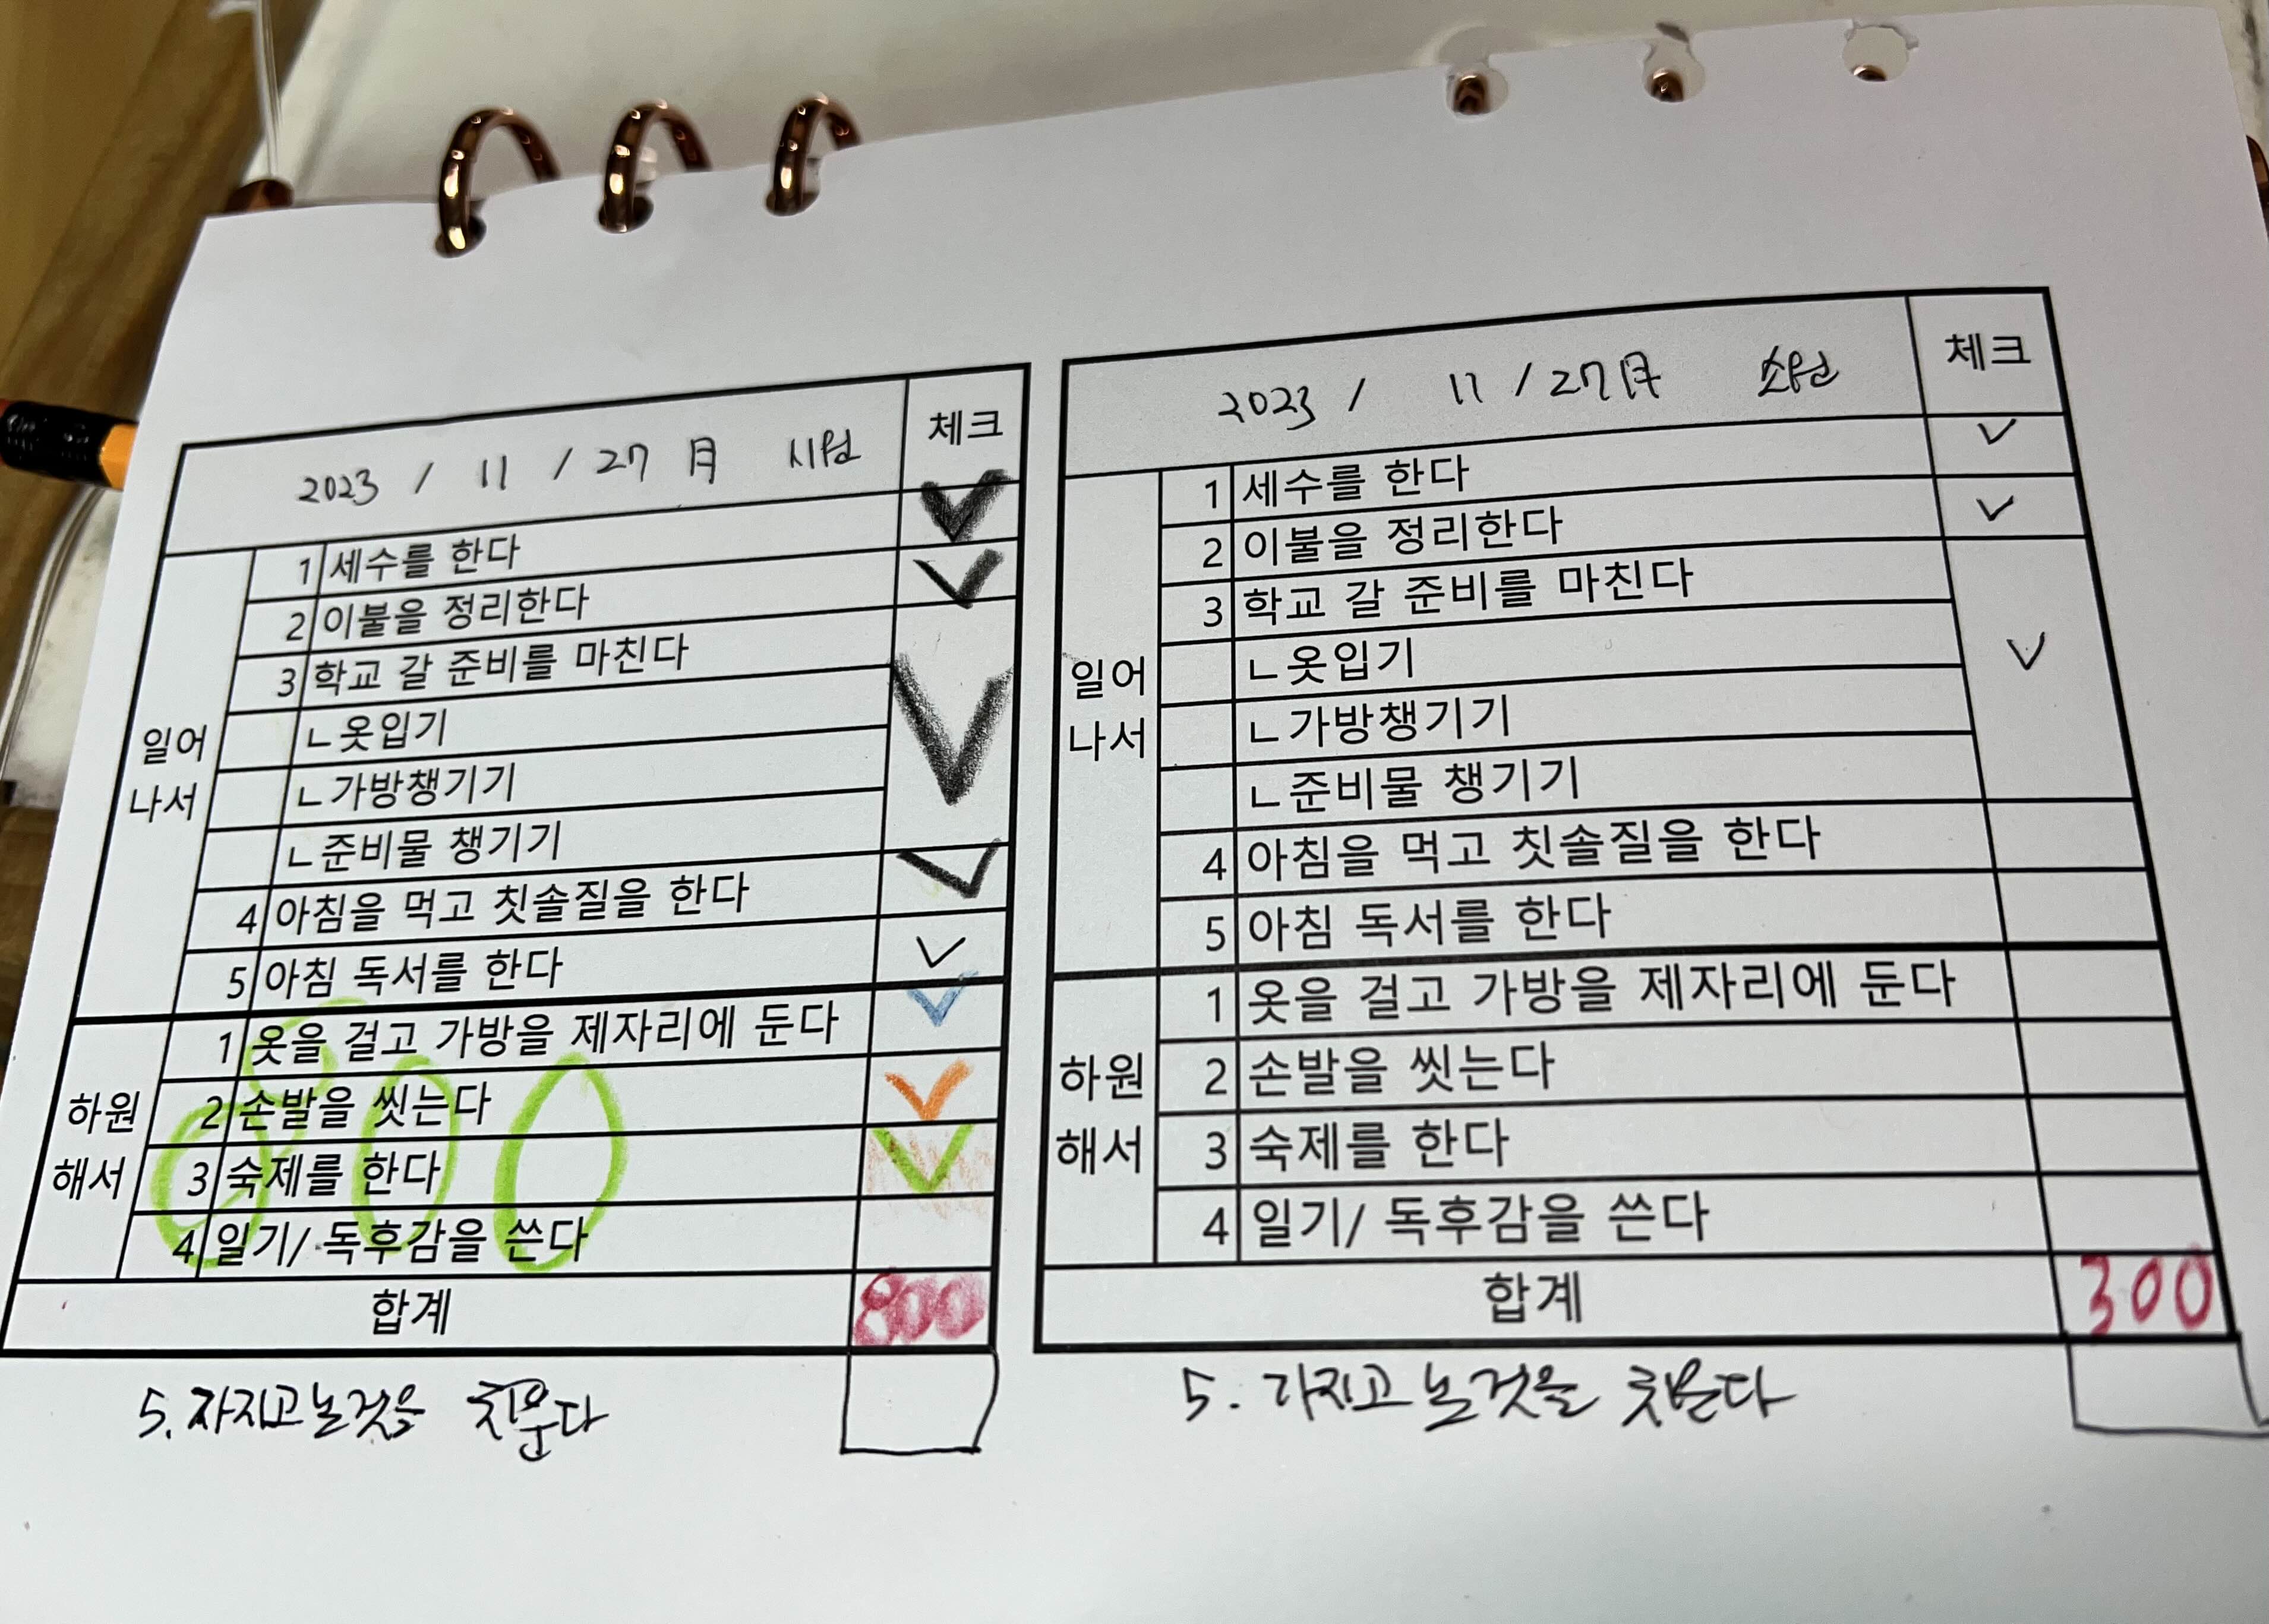 2023 / 11 / 27 月 시원 체크
일어나서
1 세수를 한다 ✓
2 이불을 정리한다 ✓
3 학교 갈 준비를 마친다 ✓
ㄴ옷입기
ㄴ가방챙기기
ㄴ준비물 챙기기
4 아침을 먹고 칫솔질을 한다 ✓
5 아침 독서를 한다 ✓
하원해서
1 옷을 걸고 가방을 제자리에 둔다 ✓
2 손발을 씻는다 ✓
3 숙제를 한다 ✓
4 일기/ 독후감을 쓴다
800
합계 800
5. 가지고 논것을 치운다
2023 / 11 / 27 月 소원 체크
일어나서
1 세수를 한다 ✓
2 이불을 정리한다 ✓
3 학교 갈 준비를 마친다 ✓
ㄴ옷입기
ㄴ가방챙기기
ㄴ준비물 챙기기
4 아침을 먹고 칫솔질을 한다
5 아침 독서를 한다
하원해서
1 옷을 걸고 가방을 제자리에 둔다
2 손발을 씻는다
3 숙제를 한다
4 일기/ 독후감을 쓴다
합계 300
5. 가지고 논것을 치운다